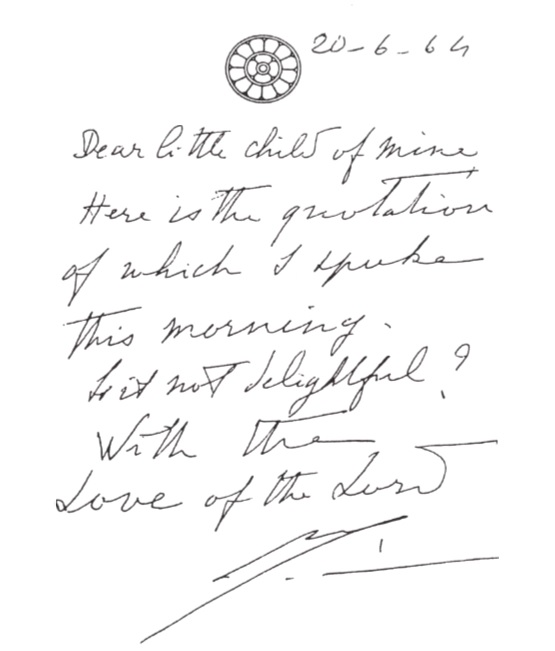 20-6-64
Dear little child of mine
Here is the quotation
of which I spoke
this morning.
Is it not delightful?
With the
Love of the Lord